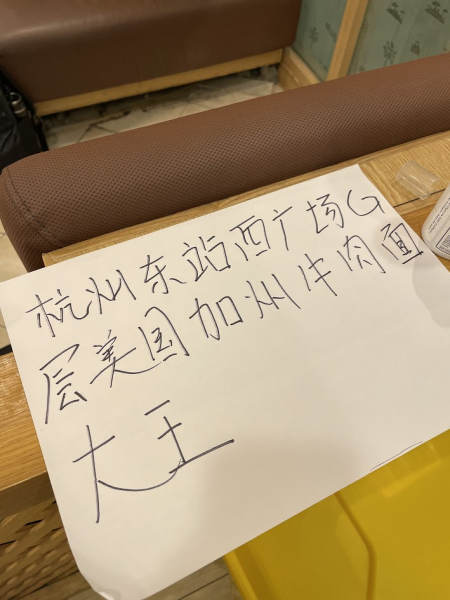 杭州东站西广场G
层美国加州牛肉面
大王